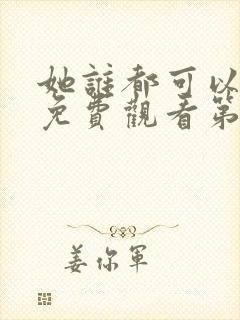 她誰都可以
免費觀看第
姜你軍